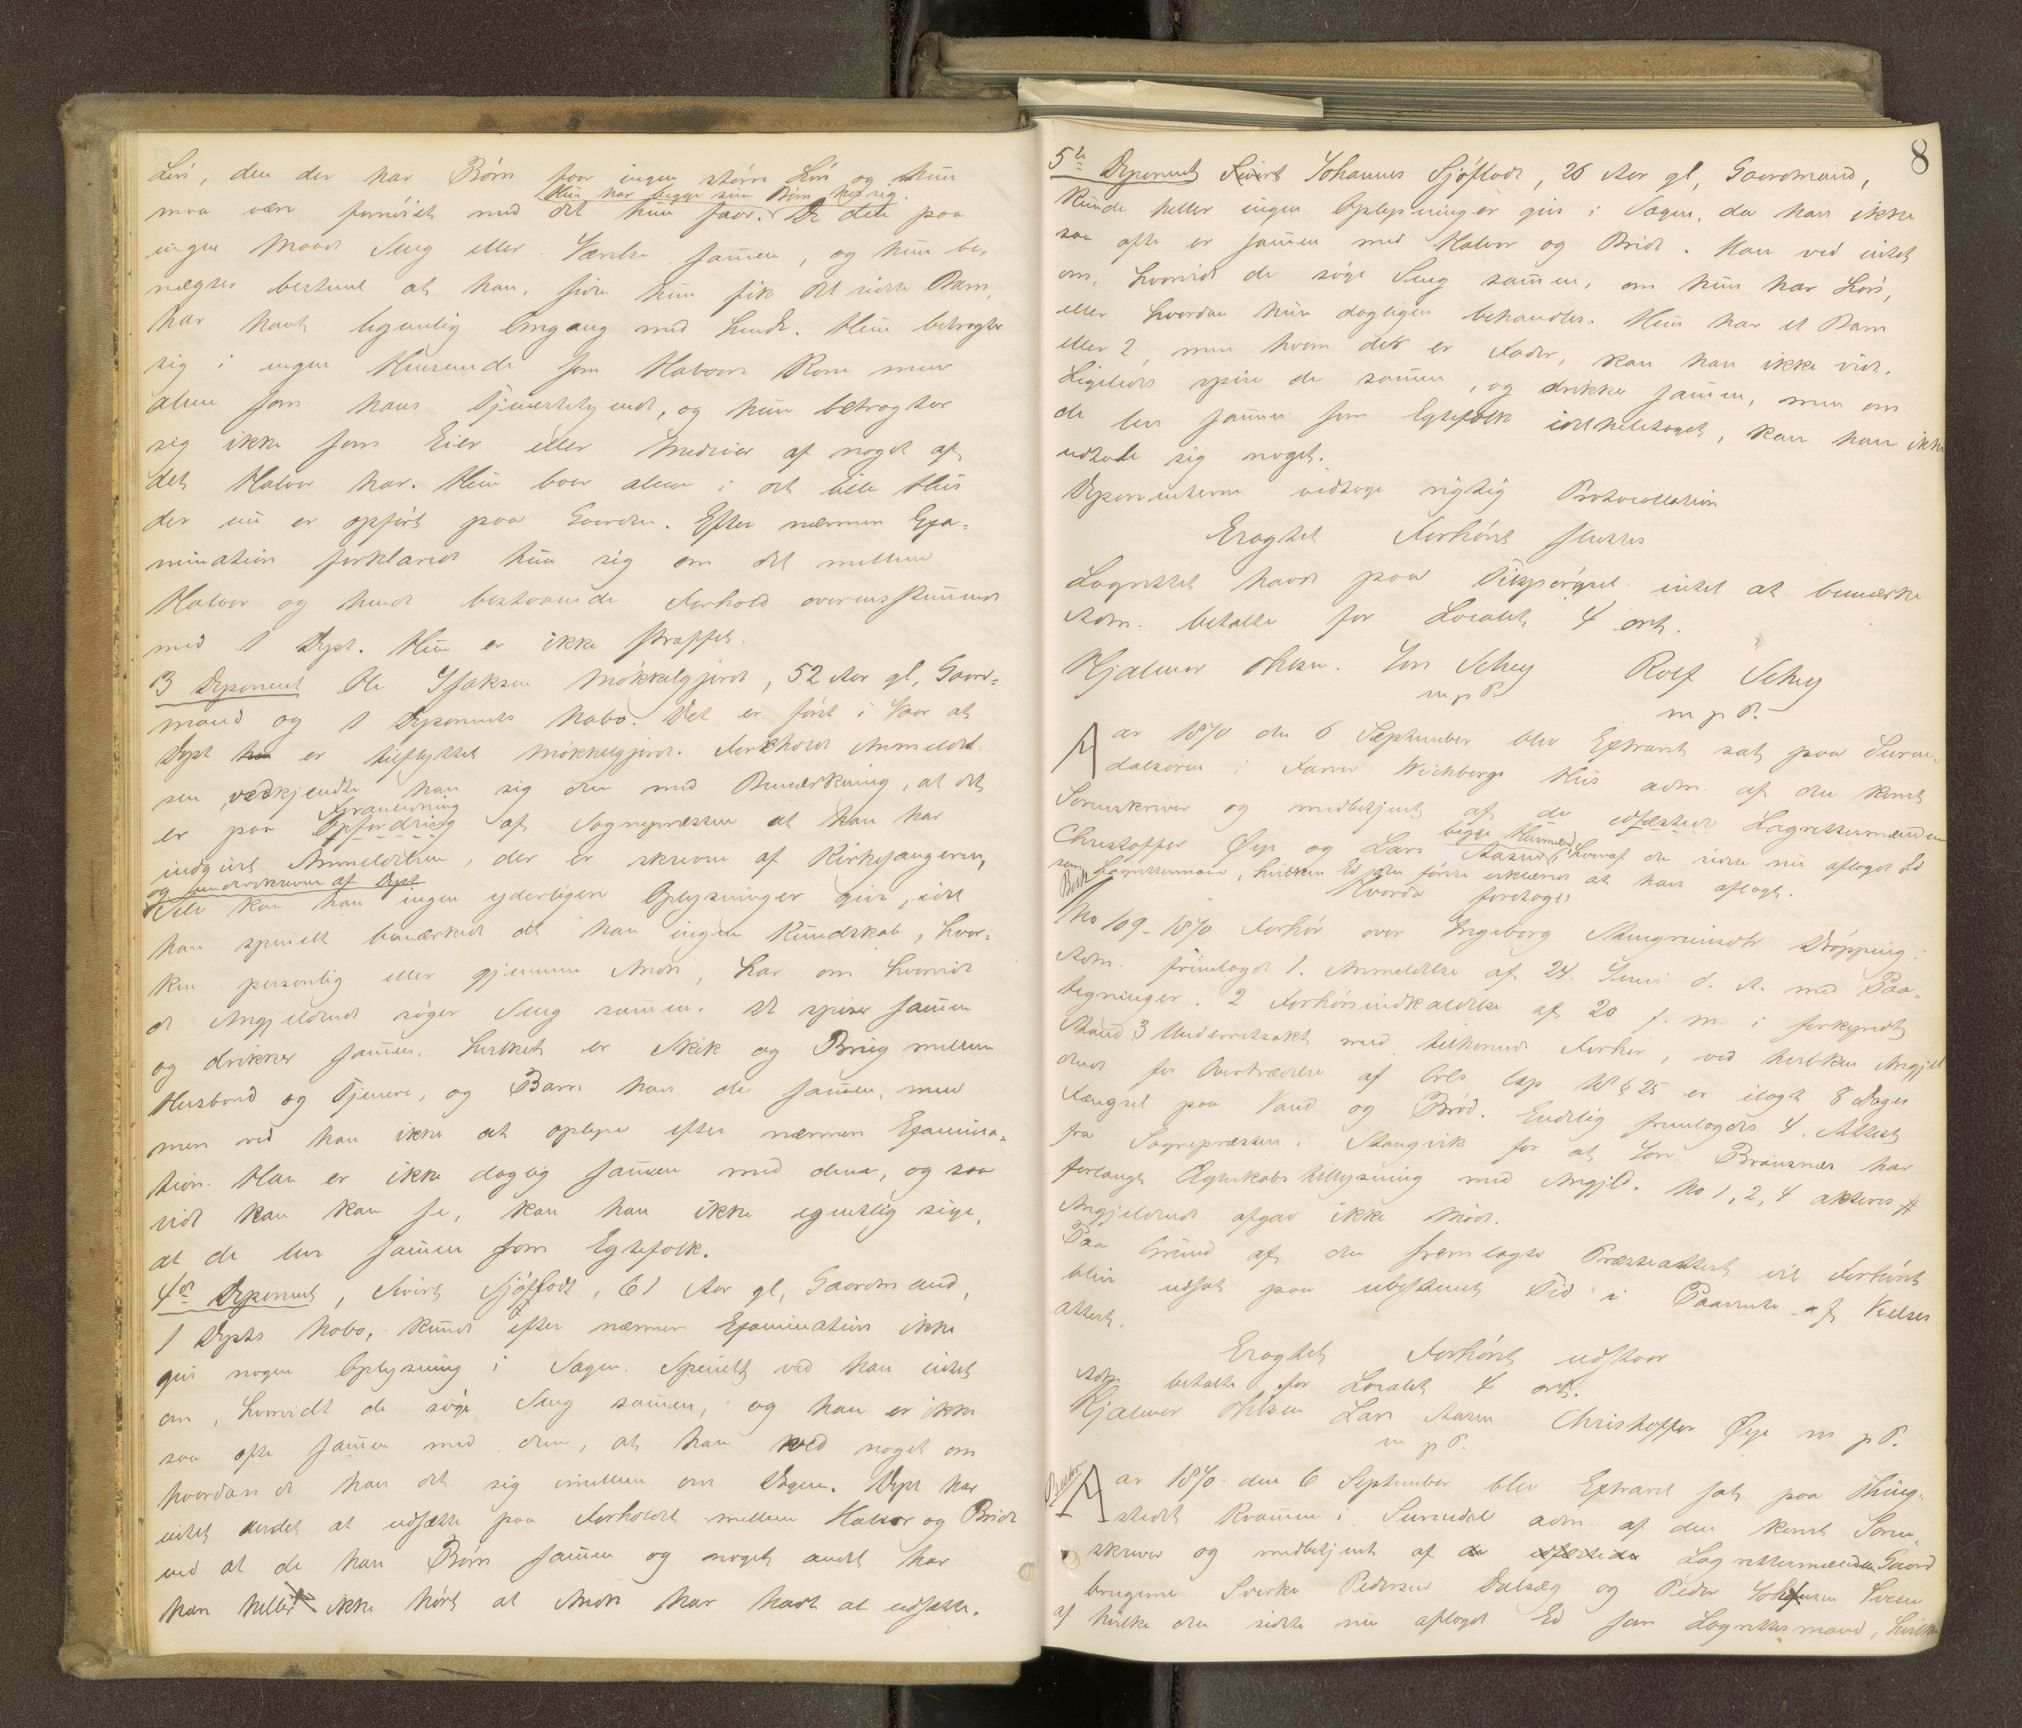 Løn, den der har Børn faar ingen større Løn og hun
Hun har begge sine Børn hos sig.
maa være fornøiet med det hun faar. De dele paa
ingen Maade Seng eller Værelse sammen, og hun be-
nægter bestemt at han, siden hun fik det sidste Barn,
har havt legemlig Omgang med hende. Hun betragter
sig i ingen Henseende som Halvors Kone men
alene som hans Tjenestetyende, og hun betragter
sig ikke som Eier eller Medeier af noget af
det Halvor har. Hun boer alene i det lille Hus
der nu er opført paa Gaarden. Efter nærmere Exa-
mination forklarede hun sig om det mellem
Halvor og hende bestaaende Forhold overensstemmende
med 1 Dept. Hun er ikke straffet.
3 Deponent Ole Isaksen Møkkelgjerdt, 52 Aar gl, Gaard-
mand og 1 Deponents Nabo. Det er først i Vaar at
Dept er tilflyttet Møkkelgjerdt. Foreholdt Anmeldel-
sen vedkjendte han sig den med Bemærkning, at det
Foranledning
er paa Opfordring af Sognepræsten at han har
indgivet Anmeldelsen, der er skreven af Kirkesangeren,
og underskreven af Dept.
Selv kan han ingen yderligere Oplysninger give, idet
han specielt bemærkede at han ingen Kundskab, hver-
ken personlig eller gjennem Andre, har om hvorvidt
de Angjeldende søger Seng sammen. De spiser sammen
og drikker sammen, hvilket er Skik og Brug mellem
Husbond og Tjenere, og Barn har de sammen, men
mere ved han ikke at oplyse efter nærmere Examina-
tion. Han er ikke daglig sammen med dem, og saa
vidt han kan se, kan han ikke egentlig sige,
at de leve sammen som Egtefolk.
4de Deponent, Sivert Sjøflodt, 61 Aar gl, Gaardmand,
1 Depts Nabo, kunde efter nærmere Examination ikke
give nogen Oplysning i Sagen. Specielt ved han intet
om, hvorvidt de søge Seng sammen, og han er ikke
saa ofte sammen med dem, at han ved noget om
hvordan de har det sig imellem om Dagen. Dept har
intet andet at udsætte paa Forholdet mellem Halvor og Brit
end at de har Børn sammen og noget andet har
han heller ikke hørt at Andre har havt at udsætte.
8
5te Deponent Sivert Johannes Sjøflodt, 26 Aar gl, Gaardmand,
kunde heller ingen Oplysninger give i Sagen, da han ikke
saa ofte er sammen med Halvor og Brit. Han ved intet
om, hvorvidt de søge Seng sammen, om hun har Løn,
eller hvordan hun dagligen behandles. Hun har et Barn
eller 2, men hvem der er Fader, kan han ikke vide.
Ligeledes spise de sammen, og drikke sammen, men om
de leve sammen som Egtefolk idetheletaget, kan han ikke
udtale sig noget.
Deponenterne vedtoge rigtig Protocollation
Eragtet Forhøret sluttes
Lagrettet havde paa Tilspørgsel intet at bemærke
Adm. betalte for Localet 4 ort.
Hjalmar Ohlsen. Jon Schey Rolf Schey
m p P. m p P.
Aar 1870 den 6 September blev Extraret sat paa Surn-
dalsøren i Farver Weichbergs Hus adm. af den const
Sorenskriver og medbetjent af de edfæstede Lagrettesmænd
begge Husmænd,
Christoffer Øye og Lars Aasen, hvoraf den sidste nu aflagde Ed
som Lagrettesmand, hvilken Ed den første erklærede at have aflagt.
Hvorda foretoges
No 109-1870 Forhør over Ingeborg Steingrimsdtr Drøpping.
Adm. fremlagde 1. Anmeldelse af 24 Juni d. A. med Paa-
tegninger. 2 Forhørsindkaldelse af 20 f. m. i forkyndt
Stand 3 Underretsakt med tilhørende Forhør, ved hvilken Angjel
dende for Overtrædelse af Crls Cap 18 § 25 er ilagt 8 Dages
Fængsel paa Vand og Brød. Endelig fremlagdes 4. Attest
fra Sognepræsten i Stangvik for at Jon Brøsknæs har
forlangt Ægteskabs tillysning med Angjeld. No 1, 2, 4 akteres
Angjeldende afgav ikke Møde.
Paa Grund af den fremlagte Præsteattest vil Forhøret
blive udsat paa ubestemt Tid i Paavente af Vielses
attest.
Eragtet Forhøret udstaar
Adm. betalte for Localet 4 ort.
Hjalmar Ohlsen Lars Aasen Christoffer Øye m p P.
m p P.
Aar 1870 den 6 September blev Extraret sat paa Thing-
stedet Kvamme i Surendal adm. af den const Soren-
skriver og medbetjent af de edfæstede Lagrettesmændene Gaard
brugerne Sverke Pedersen Dalsæg og Peder Johnsen Sveen
af hvilke den sidste nu aflagde Ed som Lagrettesmand, hvilken